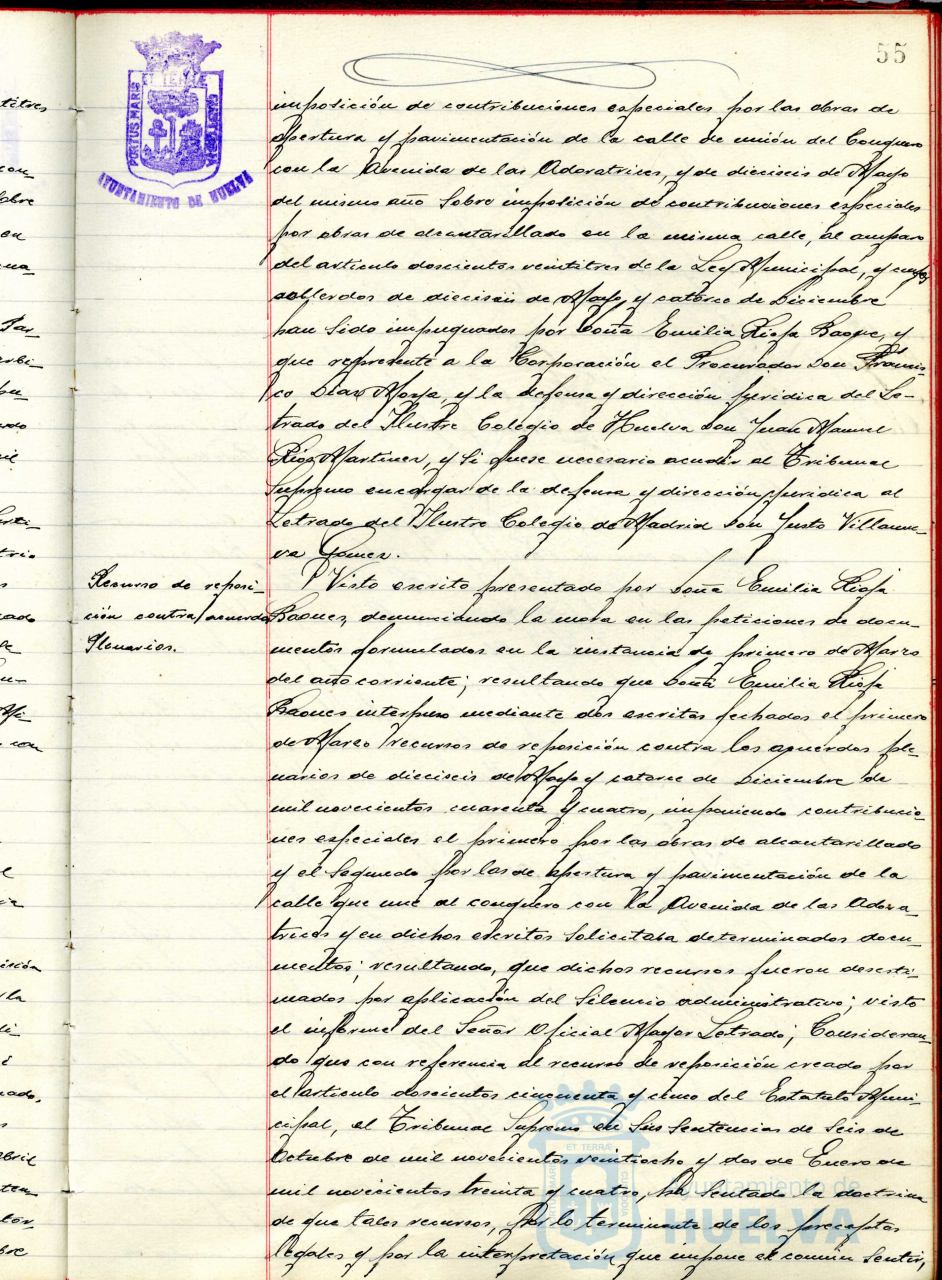 55
PORTUS MARIS
AYUNTAMIENTO DE HUELVA
imposición de contribuciones especiales por las obras de
apertura y pavimentación de la calle de unión del Conquero
con la Avenida de las Adoratrices, y de dieciseis de Mayo
del mismo año sobre imposición de contribuciones especiales
por obras de alcantarillado en la misma calle, al amparo
del articulo doscientos veintitres de la Ley Municipal, y cuyos
acuerdos de dieciseis de Mayo y catorce de Diciembre
han sido impugnados por Doña Emilia Rioja Baques, y
que represente a la Corporación el Procurador Don Francis-
co Diaz Moya, y la defensa y dirección juridica del Le-
trado del Ilustre Colegio de Huelva Don Juan Manuel
Rioz Martinez, y si fuese necesario acudir al Tribunal
Supremo encargar de la defensa y dirección juridica al
Letrado del Ilustre Colegio de Madrid Don Justo Villanue-
va Gomez.
Recurso de reposi-
ción contra acuerdos
Plenarios.
Visto escrito presentado por Doña Emilia Rioja
Baques, denunciando la mora en las peticiones de docu-
mentos formulados en la instancia de primero de Marzo
del año corriente; resultando que Doña Emilia Rioja
Baques interpuso mediante dos escritos fechados el primero
de Marzo recursos de reposición contra los acuerdos ple-
narios de dieciseis de Mayo y catorce de Diciembre de
mil novecientos cuarenta y cuatro, imponiendo contribucio-
nes especiales el primero por las obras de alcantarillado
y el segundo por las de apertura y pavimentación de la
calle que une al conquero con la Avenida de las Adora-
trices y en dichos escritos solicitaba determinados docu-
mentos; resultando, que dichos recursos fueron desesti-
mados por aplicación del Silencio administrativo; visto
el informe del Señor Oficial Mayor Letrado; Consideran-
do que con referencia al recurso de reposición creado por
el articulo doscientos cincuenta y cinco del Estatuto Muni-
cipal, el Tribunal Supremo en sus sentencias de seis de
Octubre de mil novecientos veintiocho y dos de Enero de
mil novecientos treinta y cuatro, ha sentado la doctrina
de que tales recursos, por lo terminante de los preceptos
legales y por la interpretación que impone el común sentir,
Ayuntamiento de
HUELVA